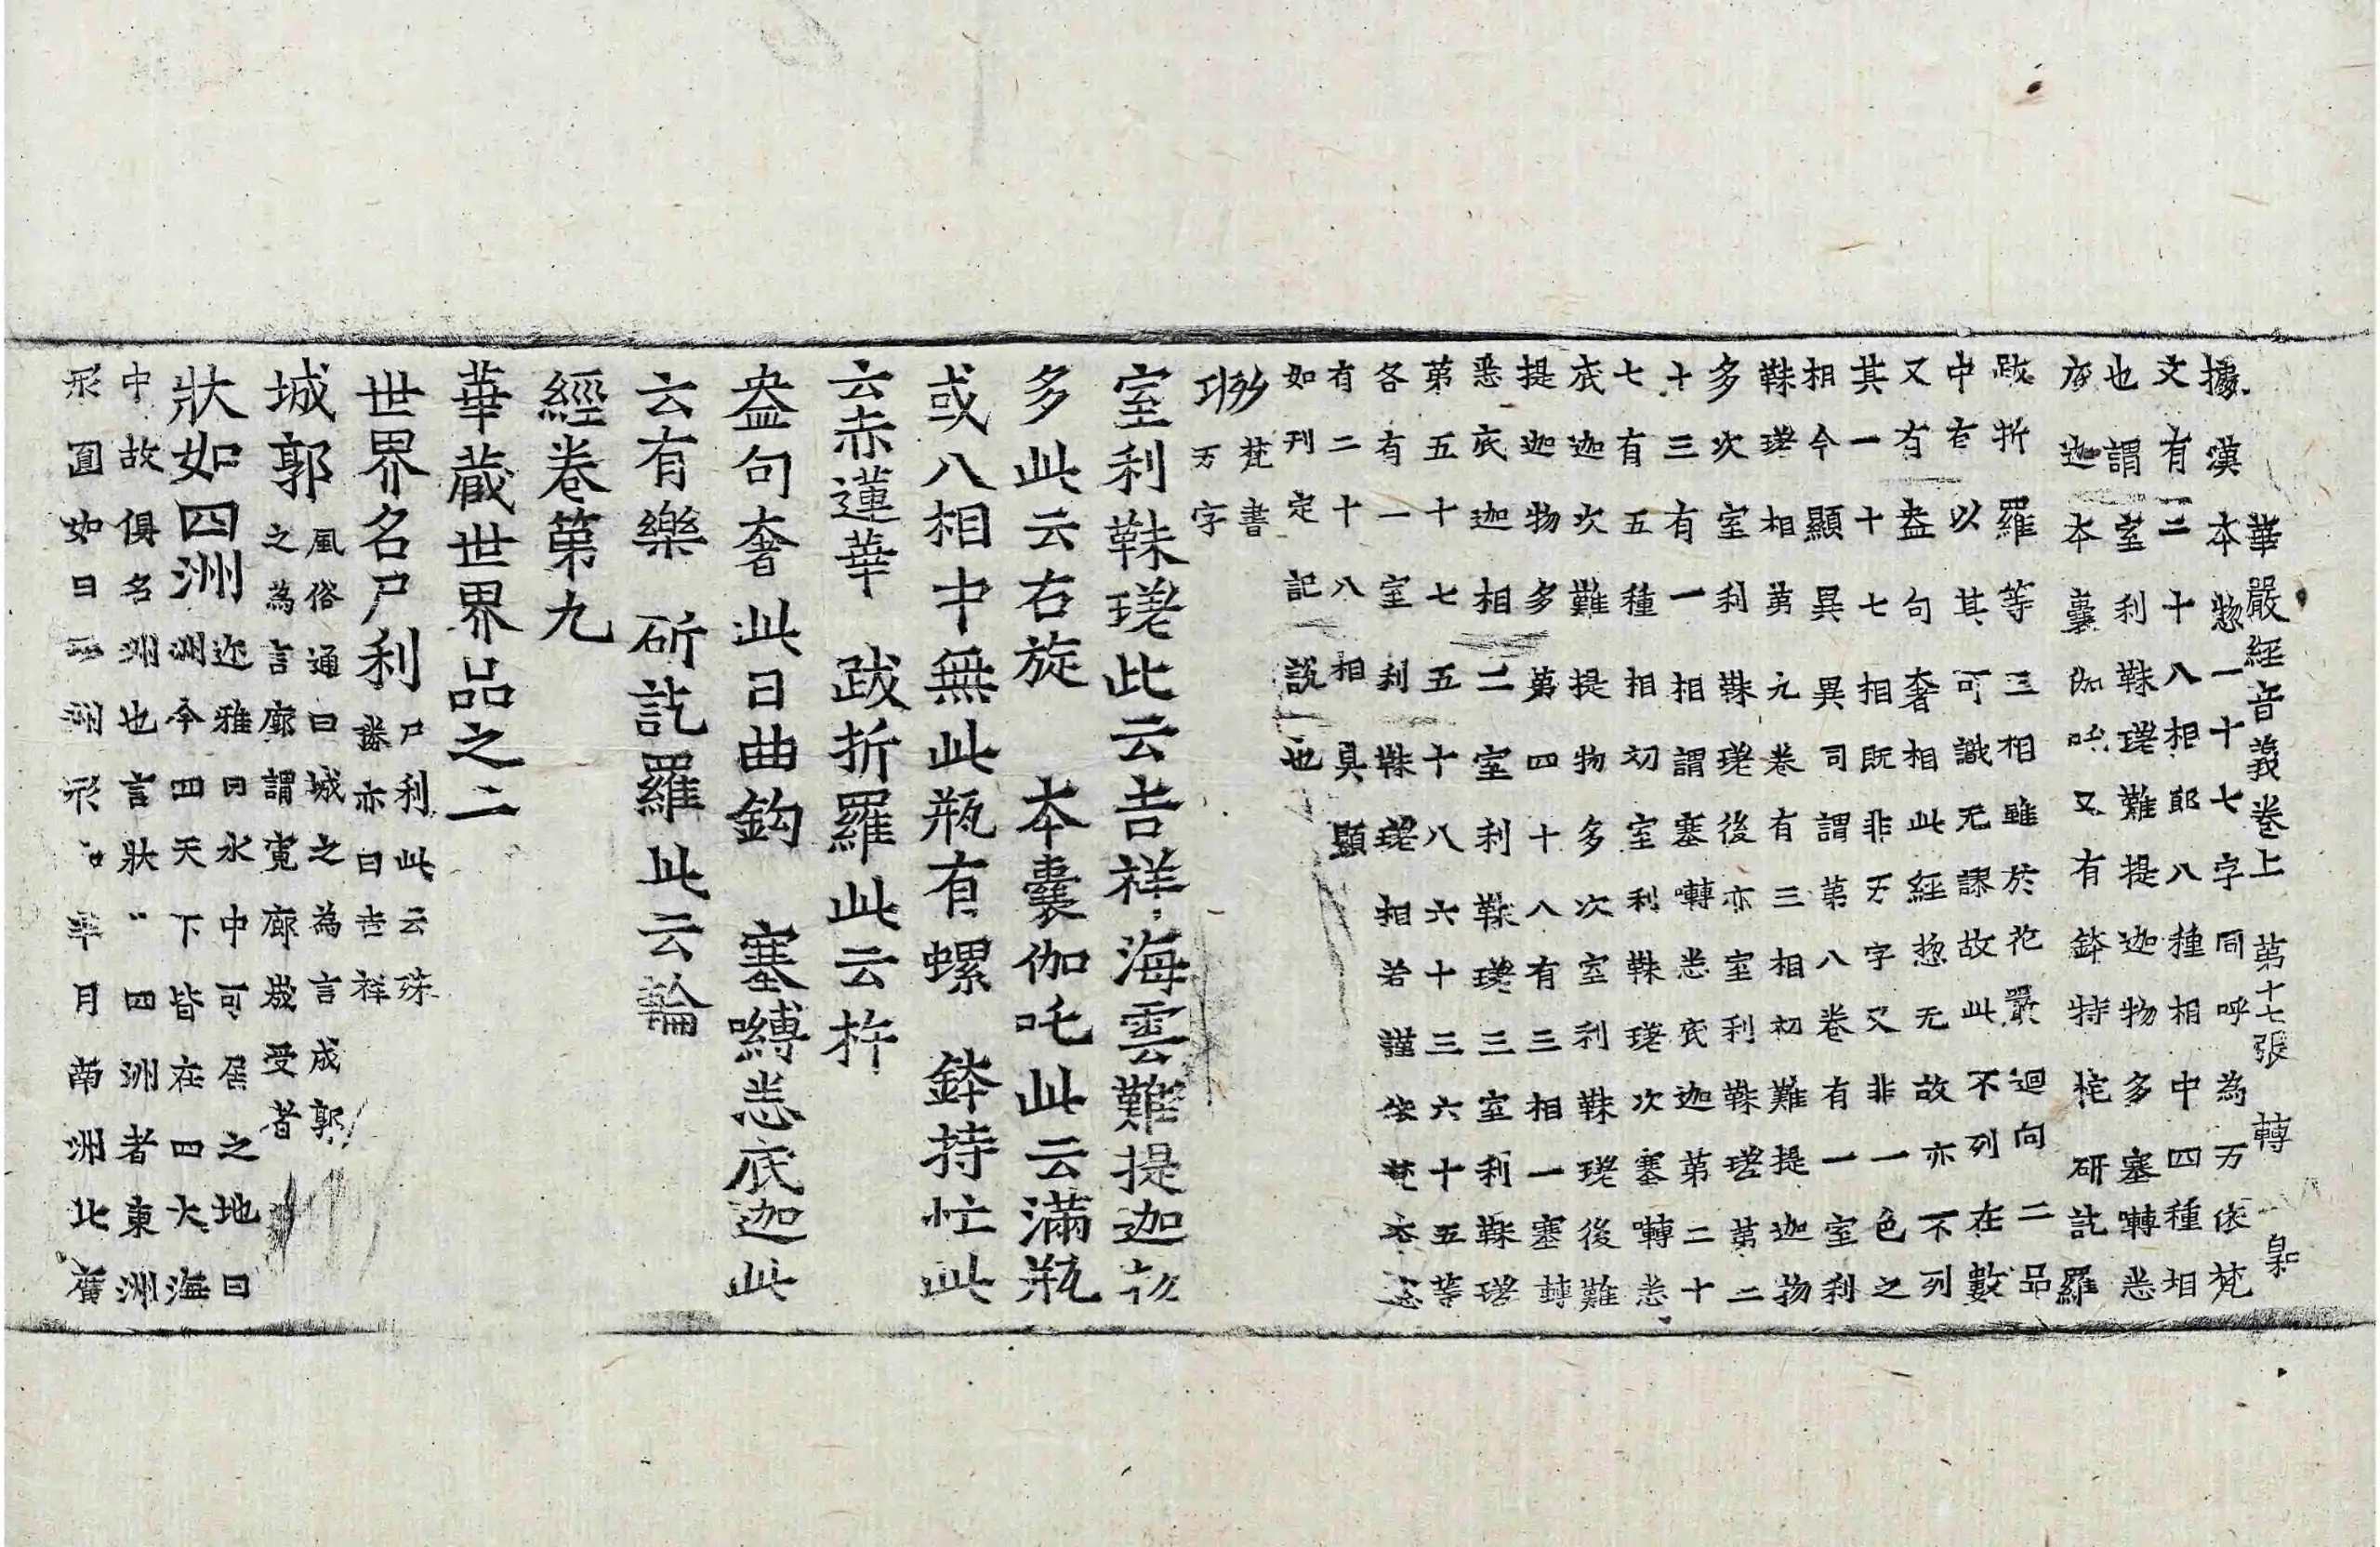 華嚴經音義卷上 第十七張 轉 㝡
據漢本惣一十七字同呼為万依梵
文有二十八相郎八種相中四種相
也謂室利靺瑳難提迦物多塞囀悉
底迦本囊伽吒又有鉢特忙研訖羅
跋折羅等三相雖於花嚴迴向二品
中有以其可識无謬故此不列在數
又有盎句奢相此經惣无故亦不列
其一十七相既非万字又非一色之
相今顯異異司謂第八卷有一室利
靺瑳相第九卷有三相初難提迦物
多次室利靺瑳後亦室利靺瑳第二
十三有一相謂塞囀悉底迦第二十
七有五種相初室利靺瑳次塞囀悉
底迦次難提物多次室利靺瑳後難
提迦物多第四十八有三相一塞囀
悉底迦相二室利靺瑳三室利靺瑳
第五十七五十八六十三六十五等
各有一室利靺瑳相若謹依梵本
有二十八相具顯
如刊定記說也
梵書
万字
室利靺瑳此云吉祥海雲難提迦物
多此云右旋 本囊伽吒此云滿瓶
或八相中無此瓶有螺 鉢特忙此
云赤蓮華 跋折羅此云杵
盎句奢此曰曲鈎 塞嚩悉底迦此
云有樂 斫訖羅此云輪
經卷第九
華藏世界品之二
世界名尸利尸利此云殊
勝亦曰吉祥
城郭風俗通曰城之為言成郭
之為言廓謂寬廓盛受者
狀如四洲迩雅曰水中可居之地曰
洲今四天下皆在四大海
中故俱名洲也言狀〃四洲者東洲
形圓如日西洲形如半月南洲北廣